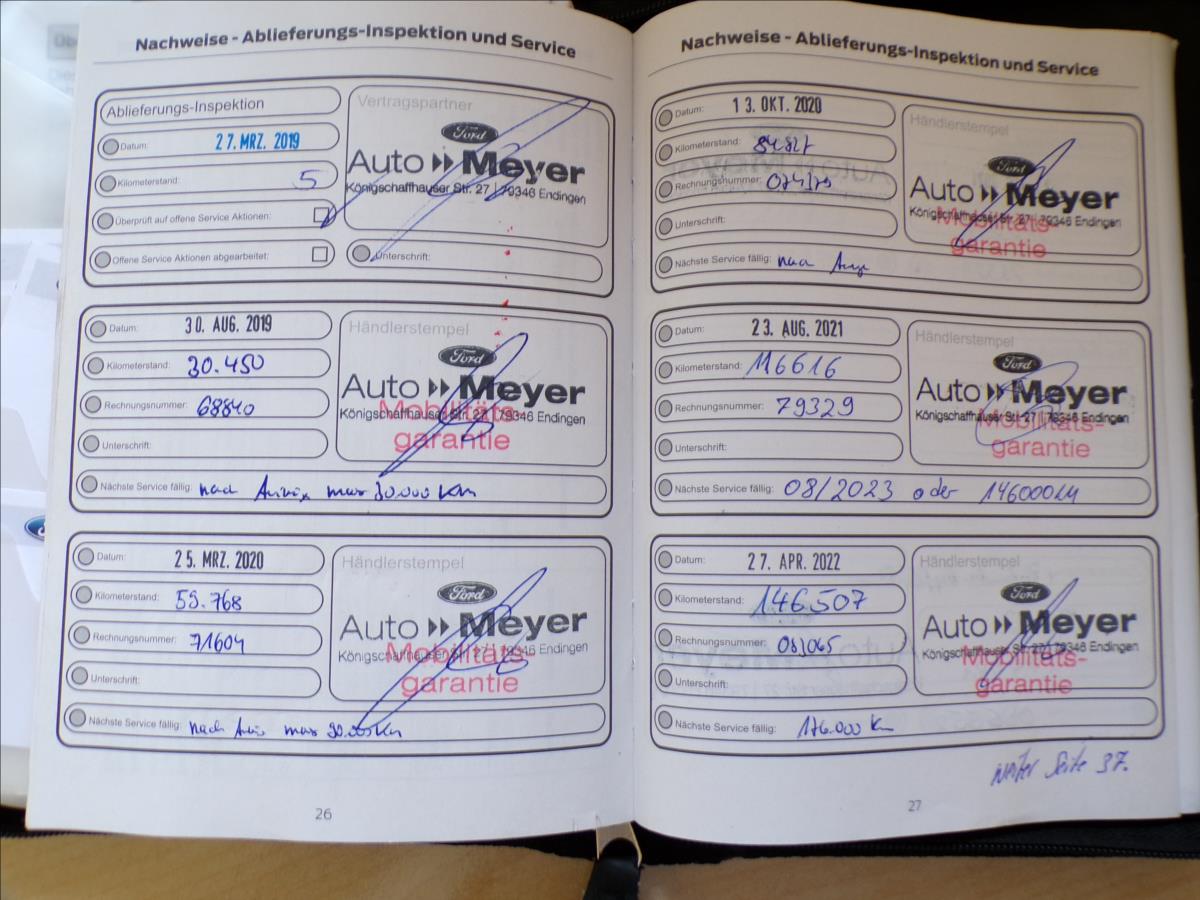 Nachweise - Ablieferungs-Inspektion und Service
Ablieferungs-Inspektion
Datum: 27. MRZ. 2019
Kilometerstand: 5
Überprüft auf offene Service Aktionen:
Offene Service Aktionen abgearbeitet:
Vertragspartner
Ford
Auto Meyer
Königschaffhauser Str. 27 | 79346 Endingen
Unterschrift:
Datum: 30. AUG. 2019
Kilometerstand: 30.450
Rechnungsnummer: 68840
Unterschrift:
Händlerstempel
Ford
Auto Meyer
Königschaffhauser Str. 27 | 79346 Endingen
Mobilitäts-
garantie
Nächste Service fällig: nach max 30.000 Km
Datum: 25. MRZ. 2020
Kilometerstand: 59.768
Rechnungsnummer: 71604
Unterschrift:
Händlerstempel
Ford
Auto Meyer
Königschaffhauser Str. 27 | 79346 Endingen
Mobilitäts-
garantie
Nächste Service fällig: nach max 30.000 Km
26
Nachweise - Ablieferungs-Inspektion und Service
Datum: 13. OKT. 2020
Kilometerstand:
Rechnungsnummer:
Unterschrift:
Händlerstempel
Ford
Auto Meyer
Königschaffhauser Str. 27 | 79346 Endingen
Mobilitäts-
garantie
Nächste Service fällig: nach
Datum: 23. AUG. 2021
Kilometerstand: 116616
Rechnungsnummer: 79329
Unterschrift:
Händlerstempel
Ford
Auto Meyer
Königschaffhauser Str. 27 | 79346 Endingen
Mobilitäts-
garantie
Nächste Service fällig: 08/2023 oder 146000 KM
Datum: 27. APR. 2022
Kilometerstand: 146.507
Rechnungsnummer: 081065
Unterschrift:
Händlerstempel
Ford
Auto Meyer
Königschaffhauser Str. 27 | 79346 Endingen
Mobilitäts-
garantie
Nächste Service fällig: 176.000 Km
weiter Seite 37.
27